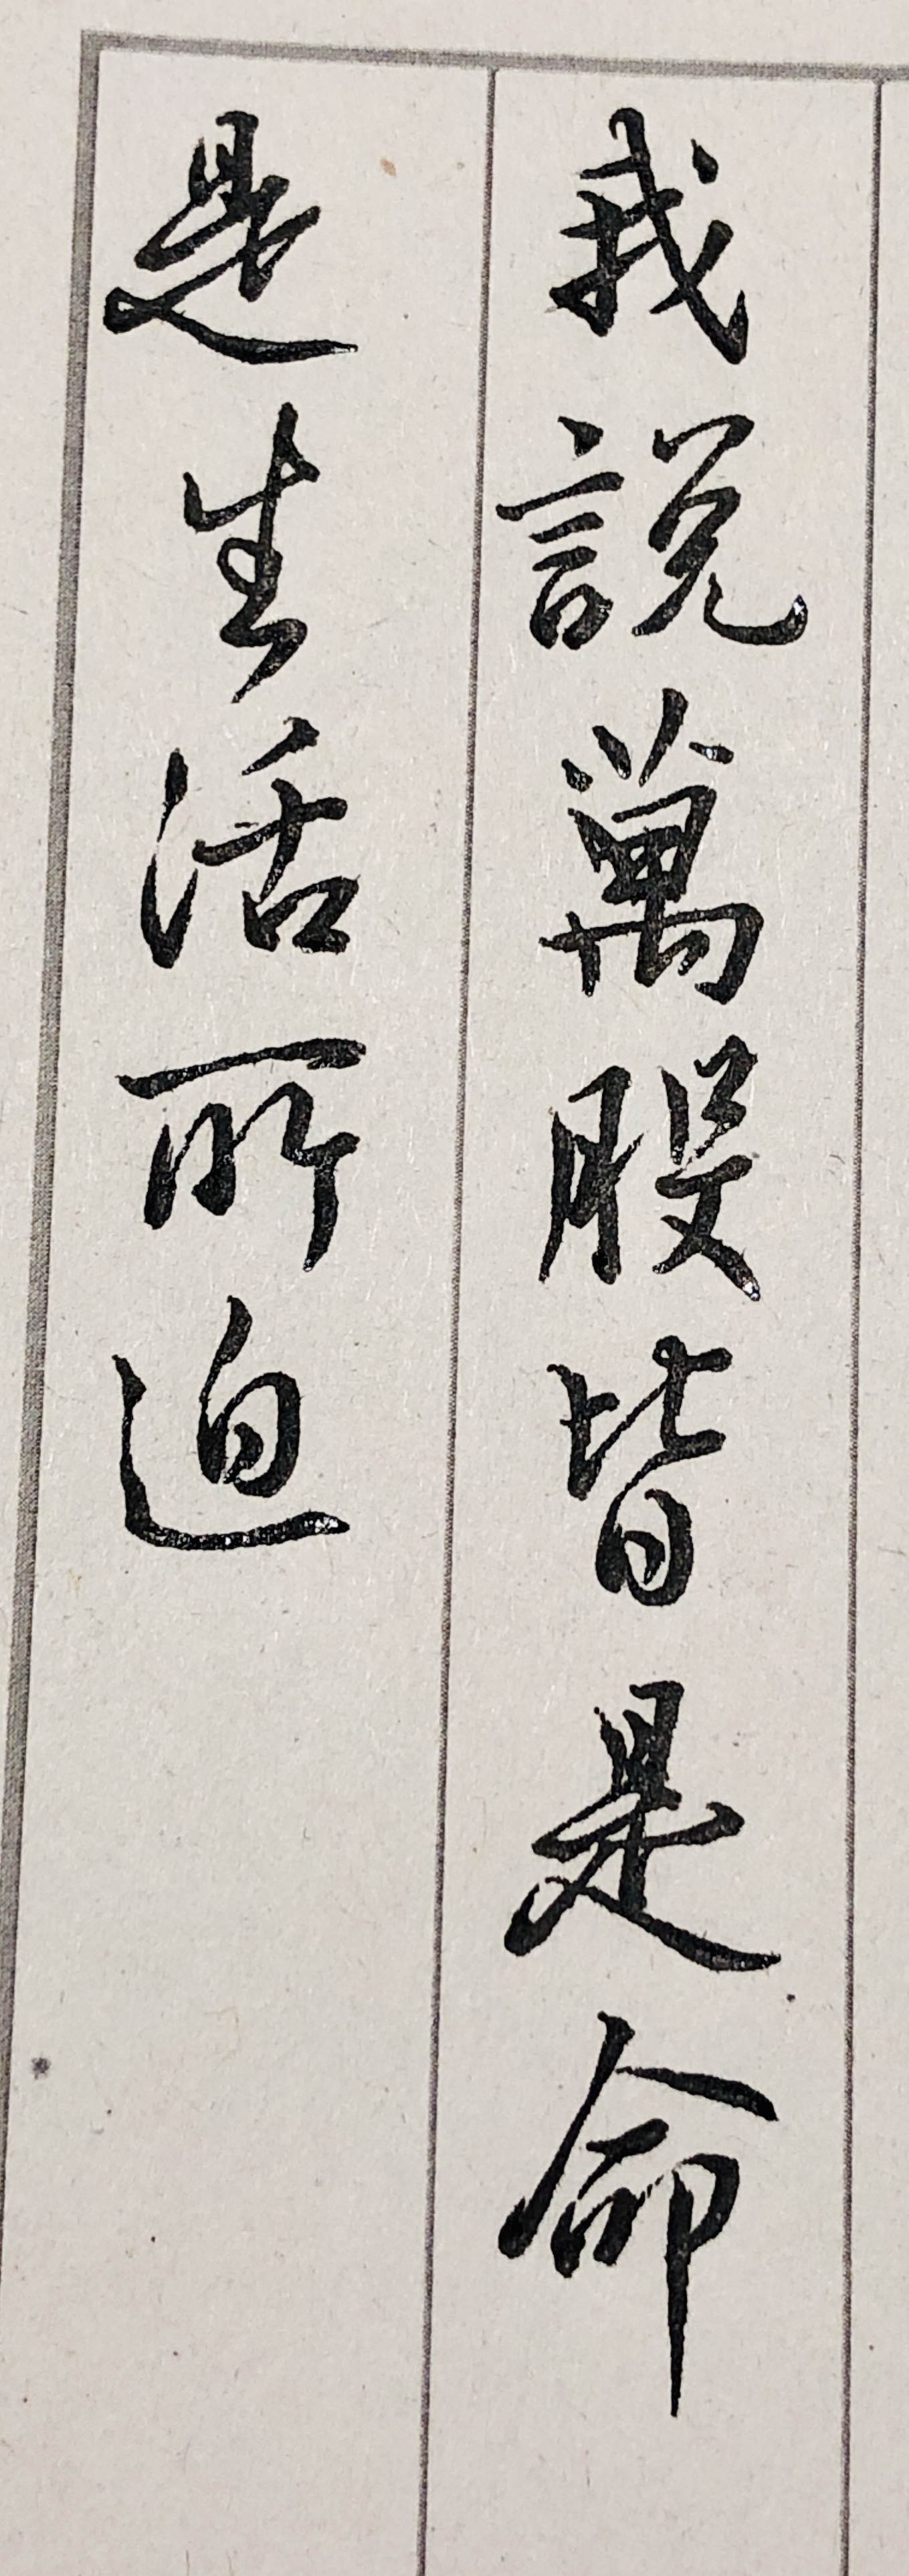 我說萬般皆是命
是生活所迫